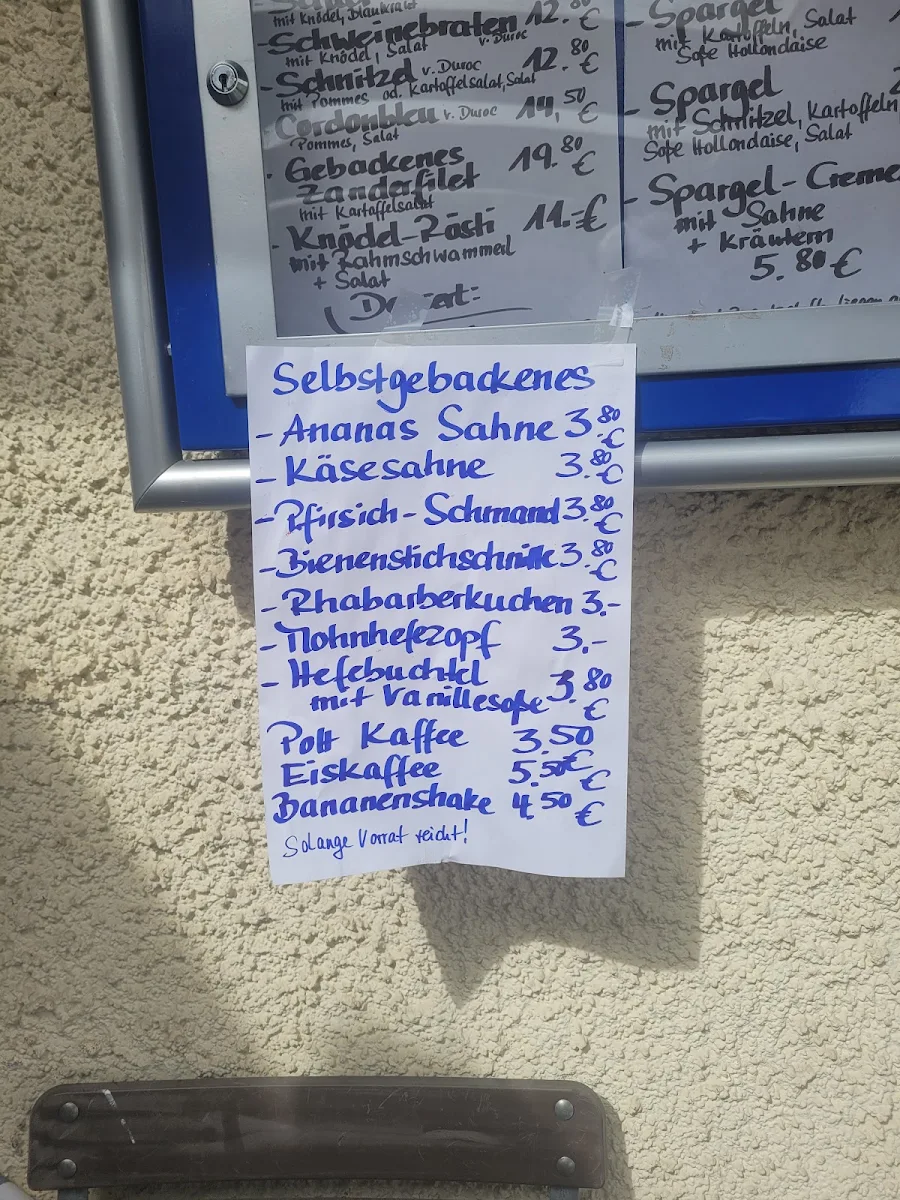 mit Knödel, Blaukraut
-Schweinebraten 12.80 €
mit Knödel, Salat v. Duroc
-Schnitzel v. Duroc 12.80 €
mit Pommes od. Kartoffelsalat, Salat
Cordonbleu v. Duroc 14,50 €
Pommes, Salat
- Gebackenes 19.80 €
Zanderfilet
mit Kartoffelsalat
- Knödel-Rösti 11.-€
mit Rahmschwammerl
+ Salat
- Spargel
mit Kartoffeln, Salat
Soße Hollandaise
- Spargel
mit Schnitzel, Kartoffeln
Soße Hollandaise, Salat
- Spargel-Creme
mit Sahne
+ Kräutern
5.80 €
Selbstgebackenes
- Ananas Sahne 3.80 €
- Käsesahne 3.80 €
- Pfirsich-Schmand 3.80 €
- Bienenstichschnitte 3.80 €
- Rhabarberkuchen 3.-
- Mohnhefezopf 3.-
- Hefebuchtel
mit Vanillesoße 3.80 €
Pott Kaffee 3.50 €
Eiskaffee 5.50 €
Bananenshake 4.50 €
Solange Vorrat reicht!